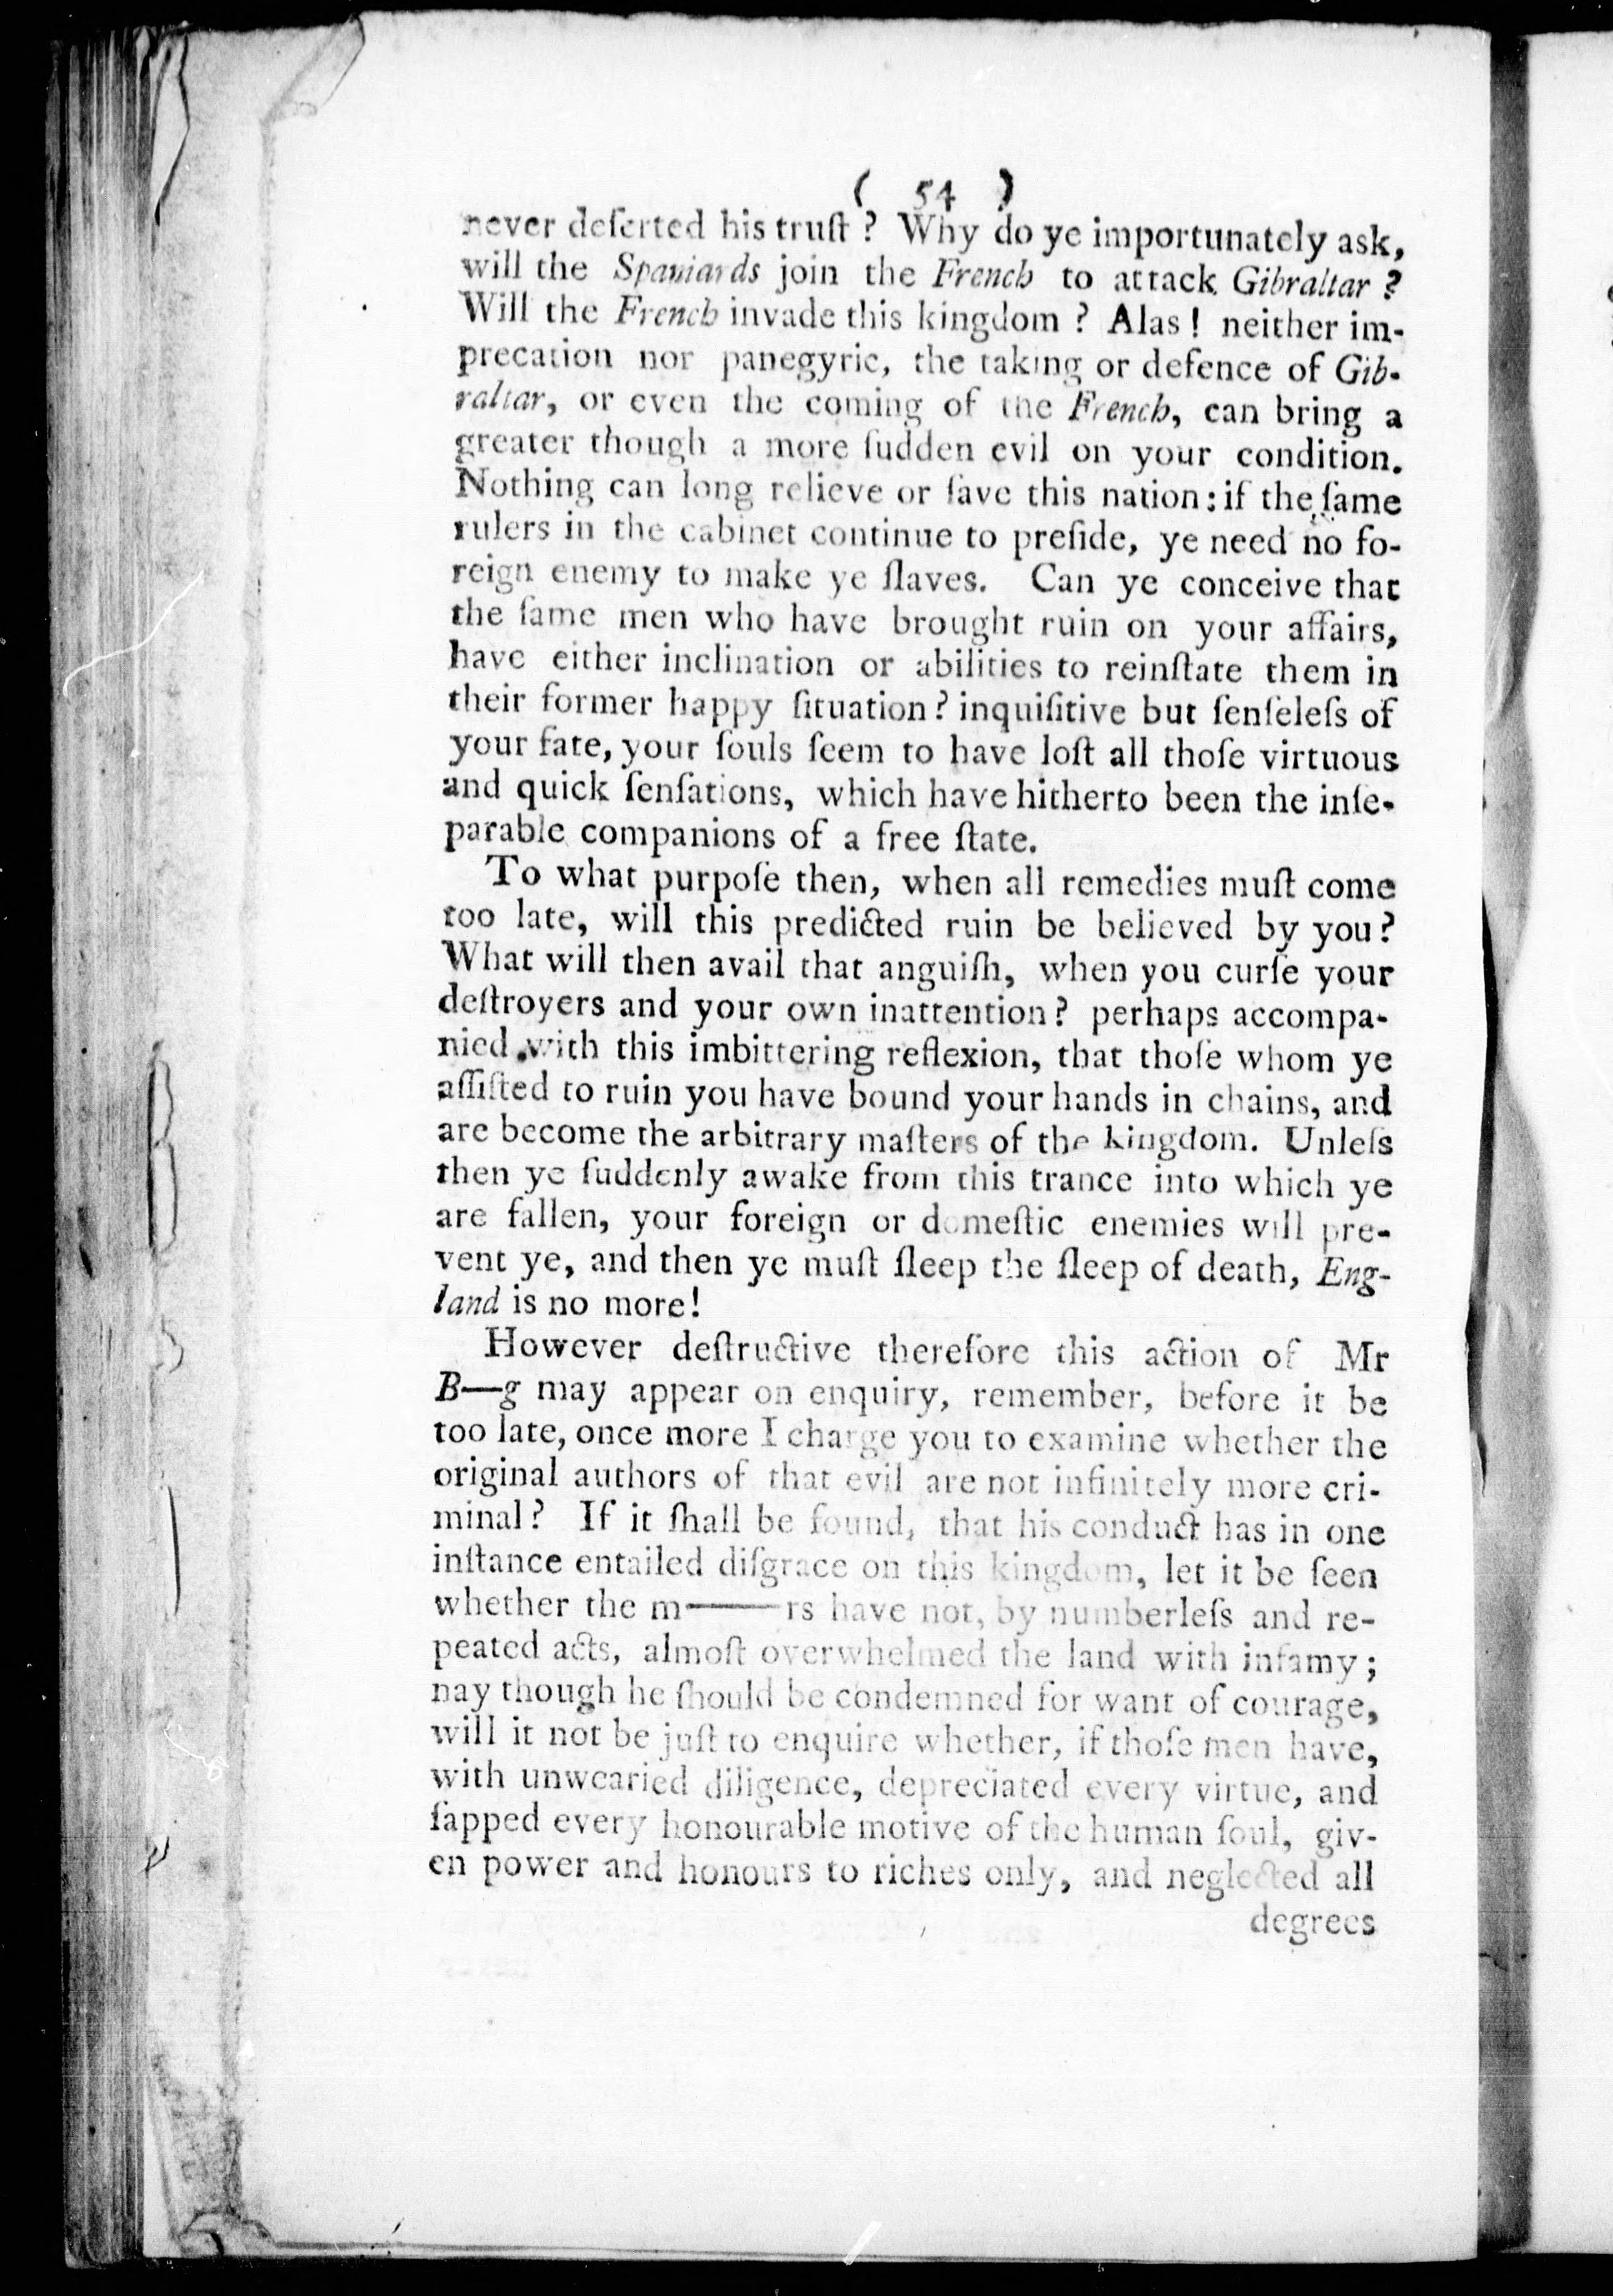 ( 54 )
never deſerted his truſt ? Why do ye importunately ask,
will the Spaniards join the French to attack Gibraltar ?
Will the French invade this kingdom ? Alas ! neither im-
precation nor panegyric, the taking or defence of Gib-
raltar, or even the coming of the French, can bring a
greater though a more ſudden evil on your condition.
Nothing can long relieve or ſave this nation: if the ſame
rulers in the cabinet continue to preſide, ye need no fo-
reign enemy to make ye ſlaves. Can ye conceive that
the ſame men who have brought ruin on your affairs,
have either inclination or abilities to reinſtate them in
their former happy ſituation? inquiſitive but ſenſeleſs of
your fate, your ſouls ſeem to have loſt all thoſe virtuous
and quick ſenſations, which have hitherto been the inſe-
parable companions of a free ſtate.
To what purpoſe then, when all remedies muſt come
too late, will this predicted ruin be believed by you?
What will then avail that anguiſh, when you curſe your
deſtroyers and your own inattention? perhaps accompa-
nied with this imbittering reflexion, that thoſe whom ye
aſſiſted to ruin you have bound your hands in chains, and
are become the arbitrary maſters of the kingdom. Unleſs
then ye ſuddenly awake from this trance into which ye
are fallen, your foreign or domeſtic enemies will pre-
vent ye, and then ye muſt ſleep the ſleep of death, Eng-
land is no more!
However deſtructive therefore this action of Mr
B—g may appear on enquiry, remember, before it be
too late, once more I charge you to examine whether the
original authors of that evil are not infinitely more cri-
minal? If it ſhall be found, that his conduct has in one
inſtance entailed diſgrace on this kingdom, let it be ſeen
whether the m——rs have not, by numberleſs and re-
peated acts, almoſt overwhelmed the land with infamy;
nay though he ſhould be condemned for want of courage,
will it not be juſt to enquire whether, if thoſe men have,
with unwearied diligence, depreciated every virtue, and
ſapped every honourable motive of the human ſoul, giv-
en power and honours to riches only, and neglected all
degrees